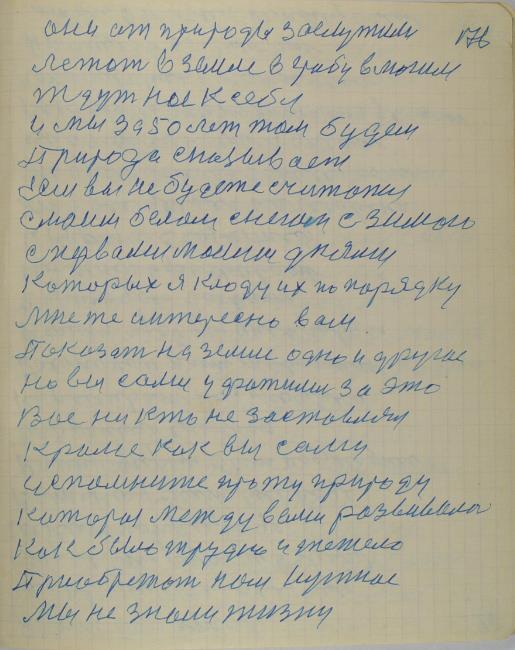 они от природы заслужили 176
лежат в земле в гробу в могили
ждут нас к себе
и мы за 50 лет там будем
Природа сказывает
Если вы не будете считатся
с моим белом снегом с зимою
с первами моими днями
которых я кладу их по порядку
мне же интересно вам
Показат на земле одно и другое
но вы сами ухватились за это
Вас ни кто не заставлял
кроме как вы сами
вспомните эту природу
которая между вами развивалась
как было трудно и тежело
Приобретат нам нужное
Мы не знали жизни